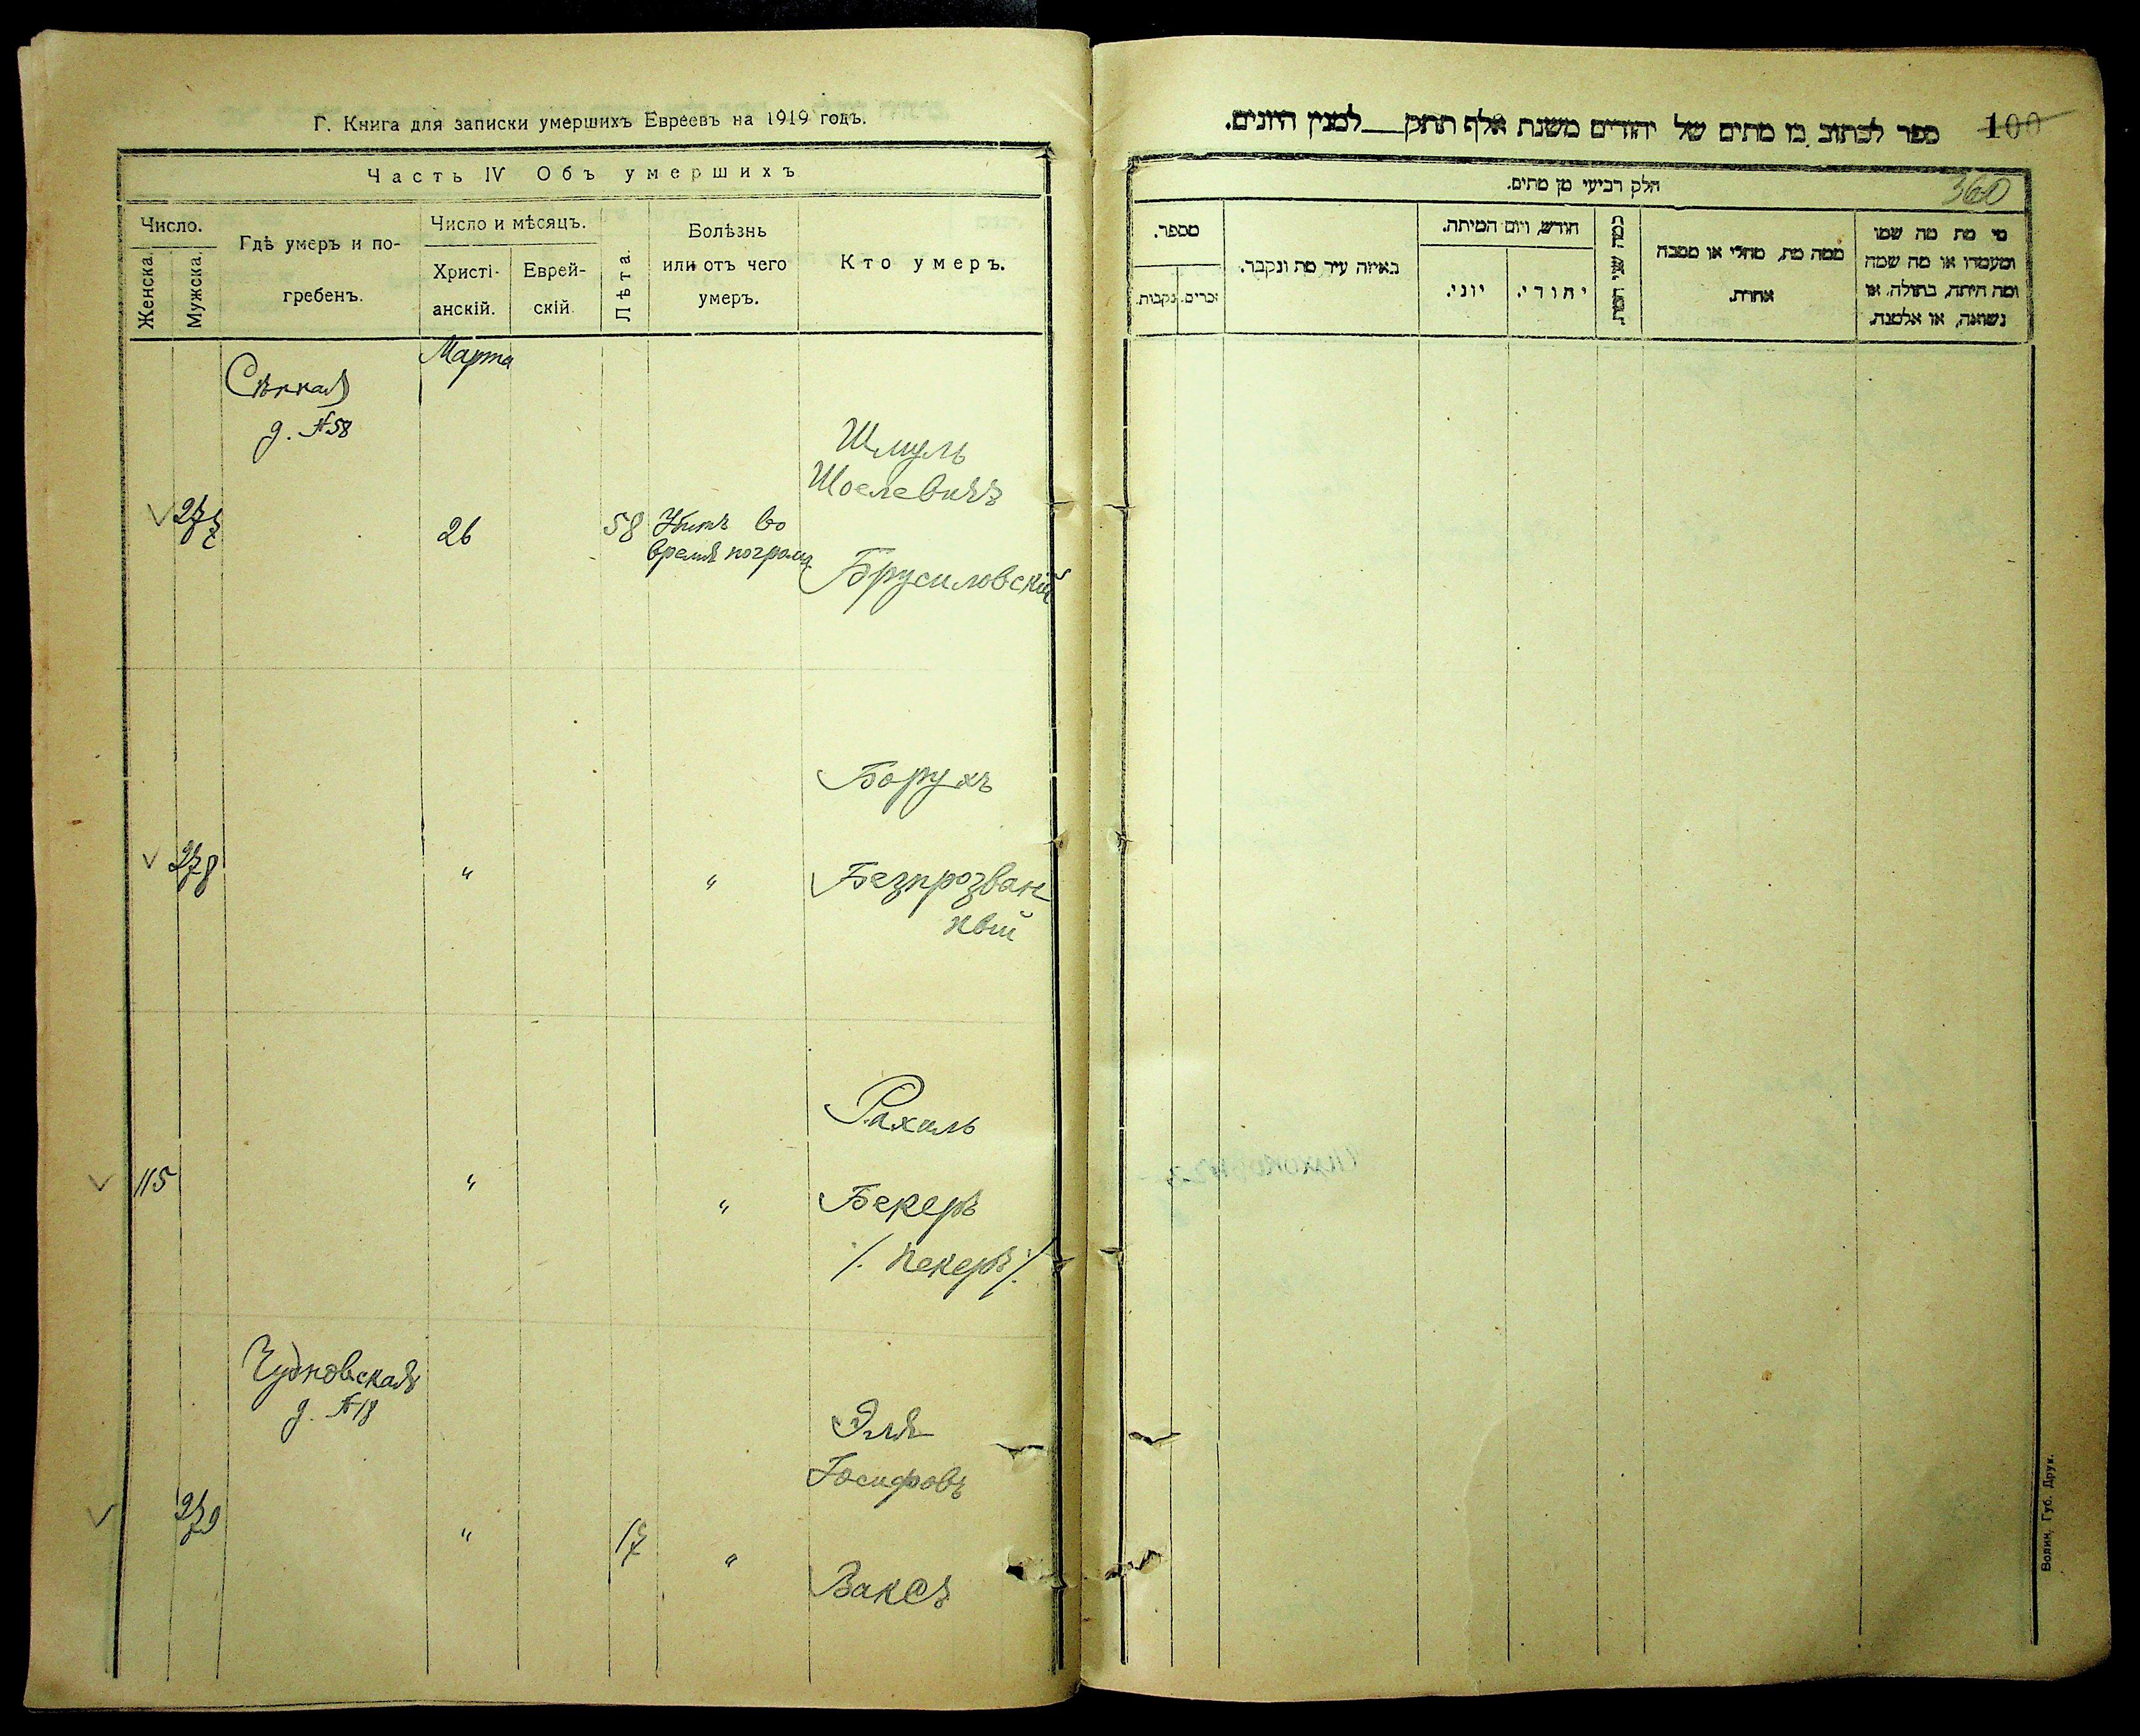 Г. Книга для записки умершихъ Евреевъ на 1919 годъ.
Часть IV Объ умершихъ
Число.
Женска.
Мужска.
Гдѣ умеръ и по-
гребенъ.
Число и мѣсяцъ.
Христі-
анскій.
Еврей-
скій.
Лѣта.
Болѣзнь
или отъ чего
умеръ.
Кто умеръ.
Марта
Сѣнная
д. №58
277
26
58
Убитъ во
время погрома
Шмуль
Шоелевичъ
Брусиловскій
278
"
"
Борухъ
Безпрозван
ный
115
"
"
Рахиль
Бекеръ
/. Пекеръ ./
Чудновская
д. №18
279
"
17
"
Эля
Іосифовъ
Ваксъ
ספר לכתוב בו מתים של יהודים משנת אלף תתק__למנין היונים.
100
חלק רביעי מן מתים.
360
מספר.
זכרים.
נקבות.
באיזה עיר מת ונקבר.
חודש, ויום המיתה.
יוני.
יהודי.
ממה מת, מחלי או מסבה
אחרת.
מי מת מה שמו
ומעמדו או מה שמה
ומה היתה, בתולה, או
נשואה, או אלמנה.
Волин. Губ. Друк.